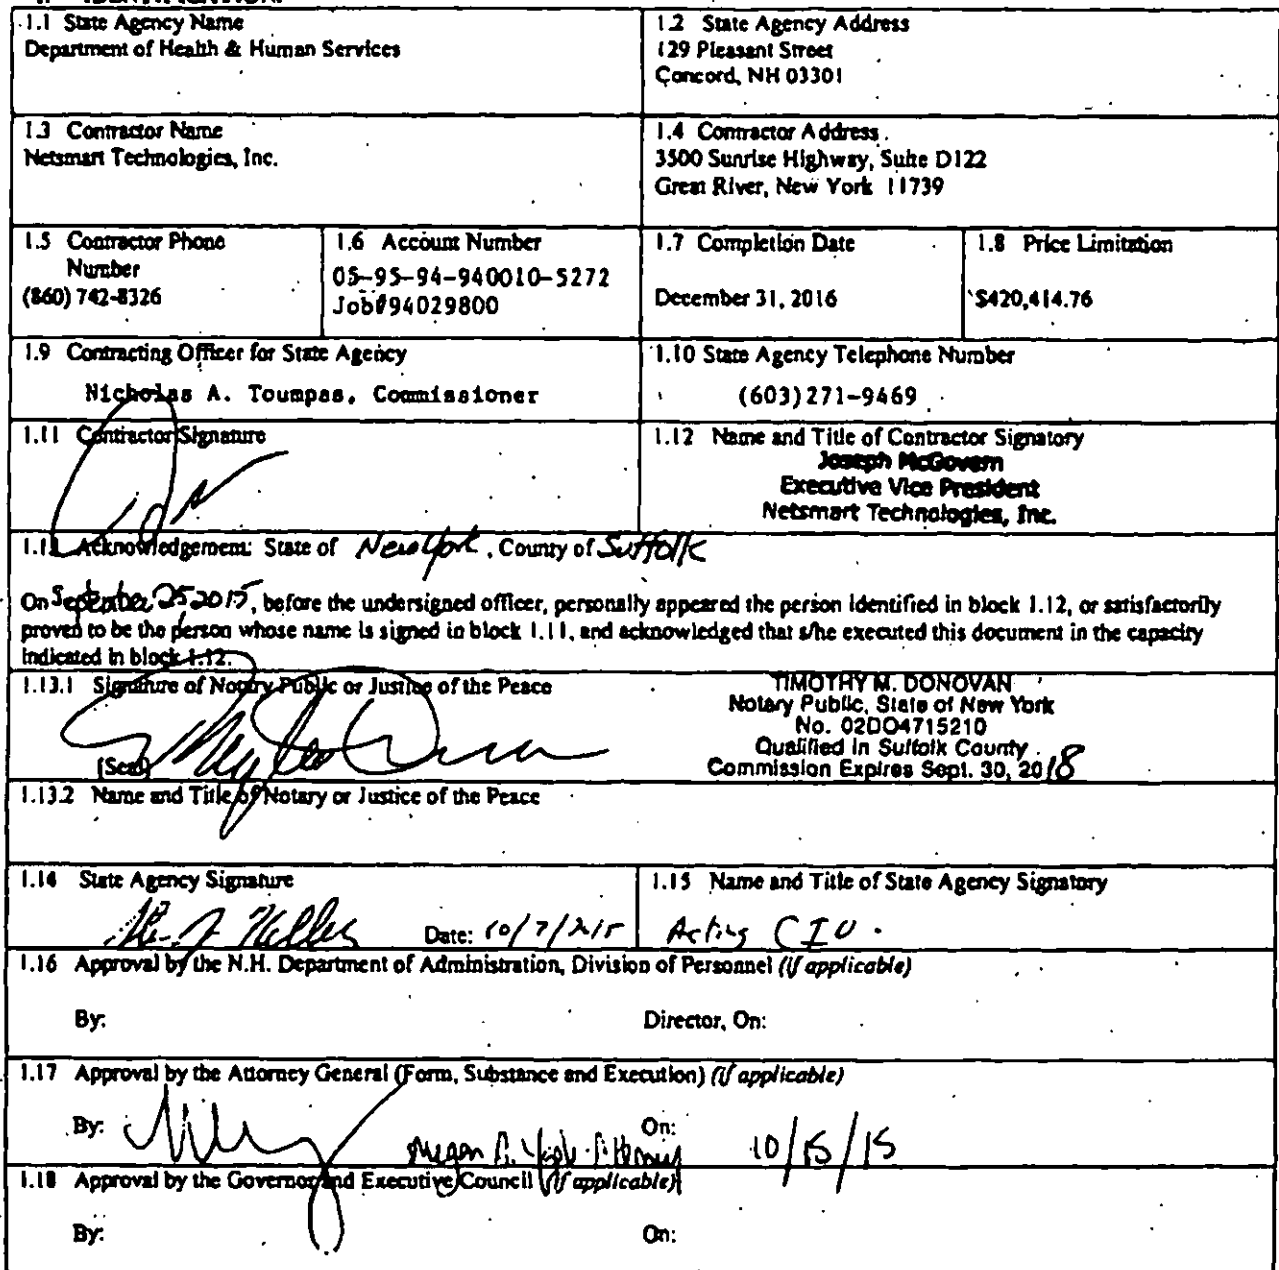 1.1 State Agency Name
Department of Health & Human Services
1.2 State Agency Address
129 Pleasant Street
Concord, NH 03301
1.3 Contractor Name
Netsmart Technologies, Inc.
1.4 Contractor Address
3500 Sunrise Highway, Suite D122
Great River, New York 11739
1.5 Contractor Phone
Number
(860) 742-8326
1.6 Account Number
05-95-94-940010-5272
Job#94029800
1.7 Completion Date
December 31, 2016
1.8 Price Limitation
$420,414.76
1.9 Contracting Officer for State Agency
Nicholas A. Toumpas, Commissioner
1.10 State Agency Telephone Number
(603)271-9469
1.11 Contractor Signature
1.12 Name and Title of Contractor Signatory
Joseph McGovern
Executive Vice President
Netsmart Technologies, Inc.
1.13 Acknowledgement: State of New York, County of Suffolk
On September 25 2015, before the undersigned officer, personally appeared the person identified in block 1.12, or satisfactorily
proven to be the person whose name is signed in block 1.11, and acknowledged that s/he executed this document in the capacity
indicated in block 1.12.
1.13.1 Signature of Notary Public or Justice of the Peace
[Seal]
TIMOTHY M. DONOVAN
Notary Public, State of New York
No. 02DO4715210
Qualified in Suffolk County
Commission Expires Sept. 30, 2018
1.13.2 Name and Title of Notary or Justice of the Peace
1.14 State Agency Signature
Date: 10/7/2015
1.15 Name and Title of State Agency Signatory
Acting CIO.
1.16 Approval by the N.H. Department of Administration, Division of Personnel (if applicable)
By:
Director, On:
1.17 Approval by the Attorney General (Form, Substance and Execution) (if applicable)
By:
Megan A.
On:
10/15/15
1.18 Approval by the Governor and Executive Council (if applicable)
By:
On: